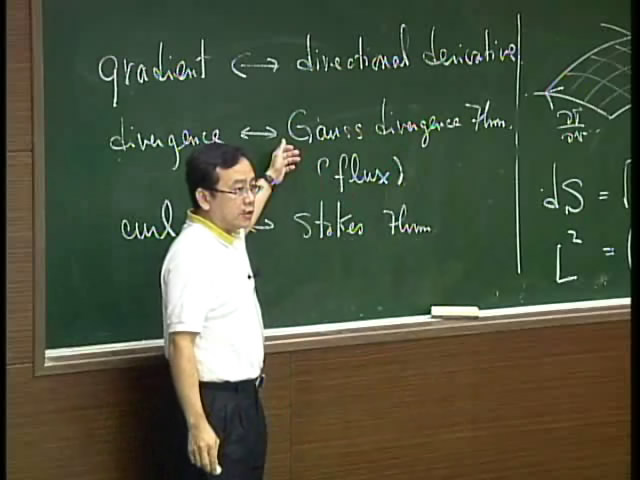 gradient ↔ directional derivative
divergence ↔ Gauss divergence Thm.
(flux)
curl ↔ Stokes Thm
∂r/∂v
dS =
L² =